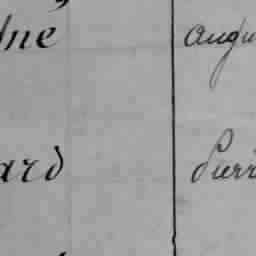 né augu
ard Pierr